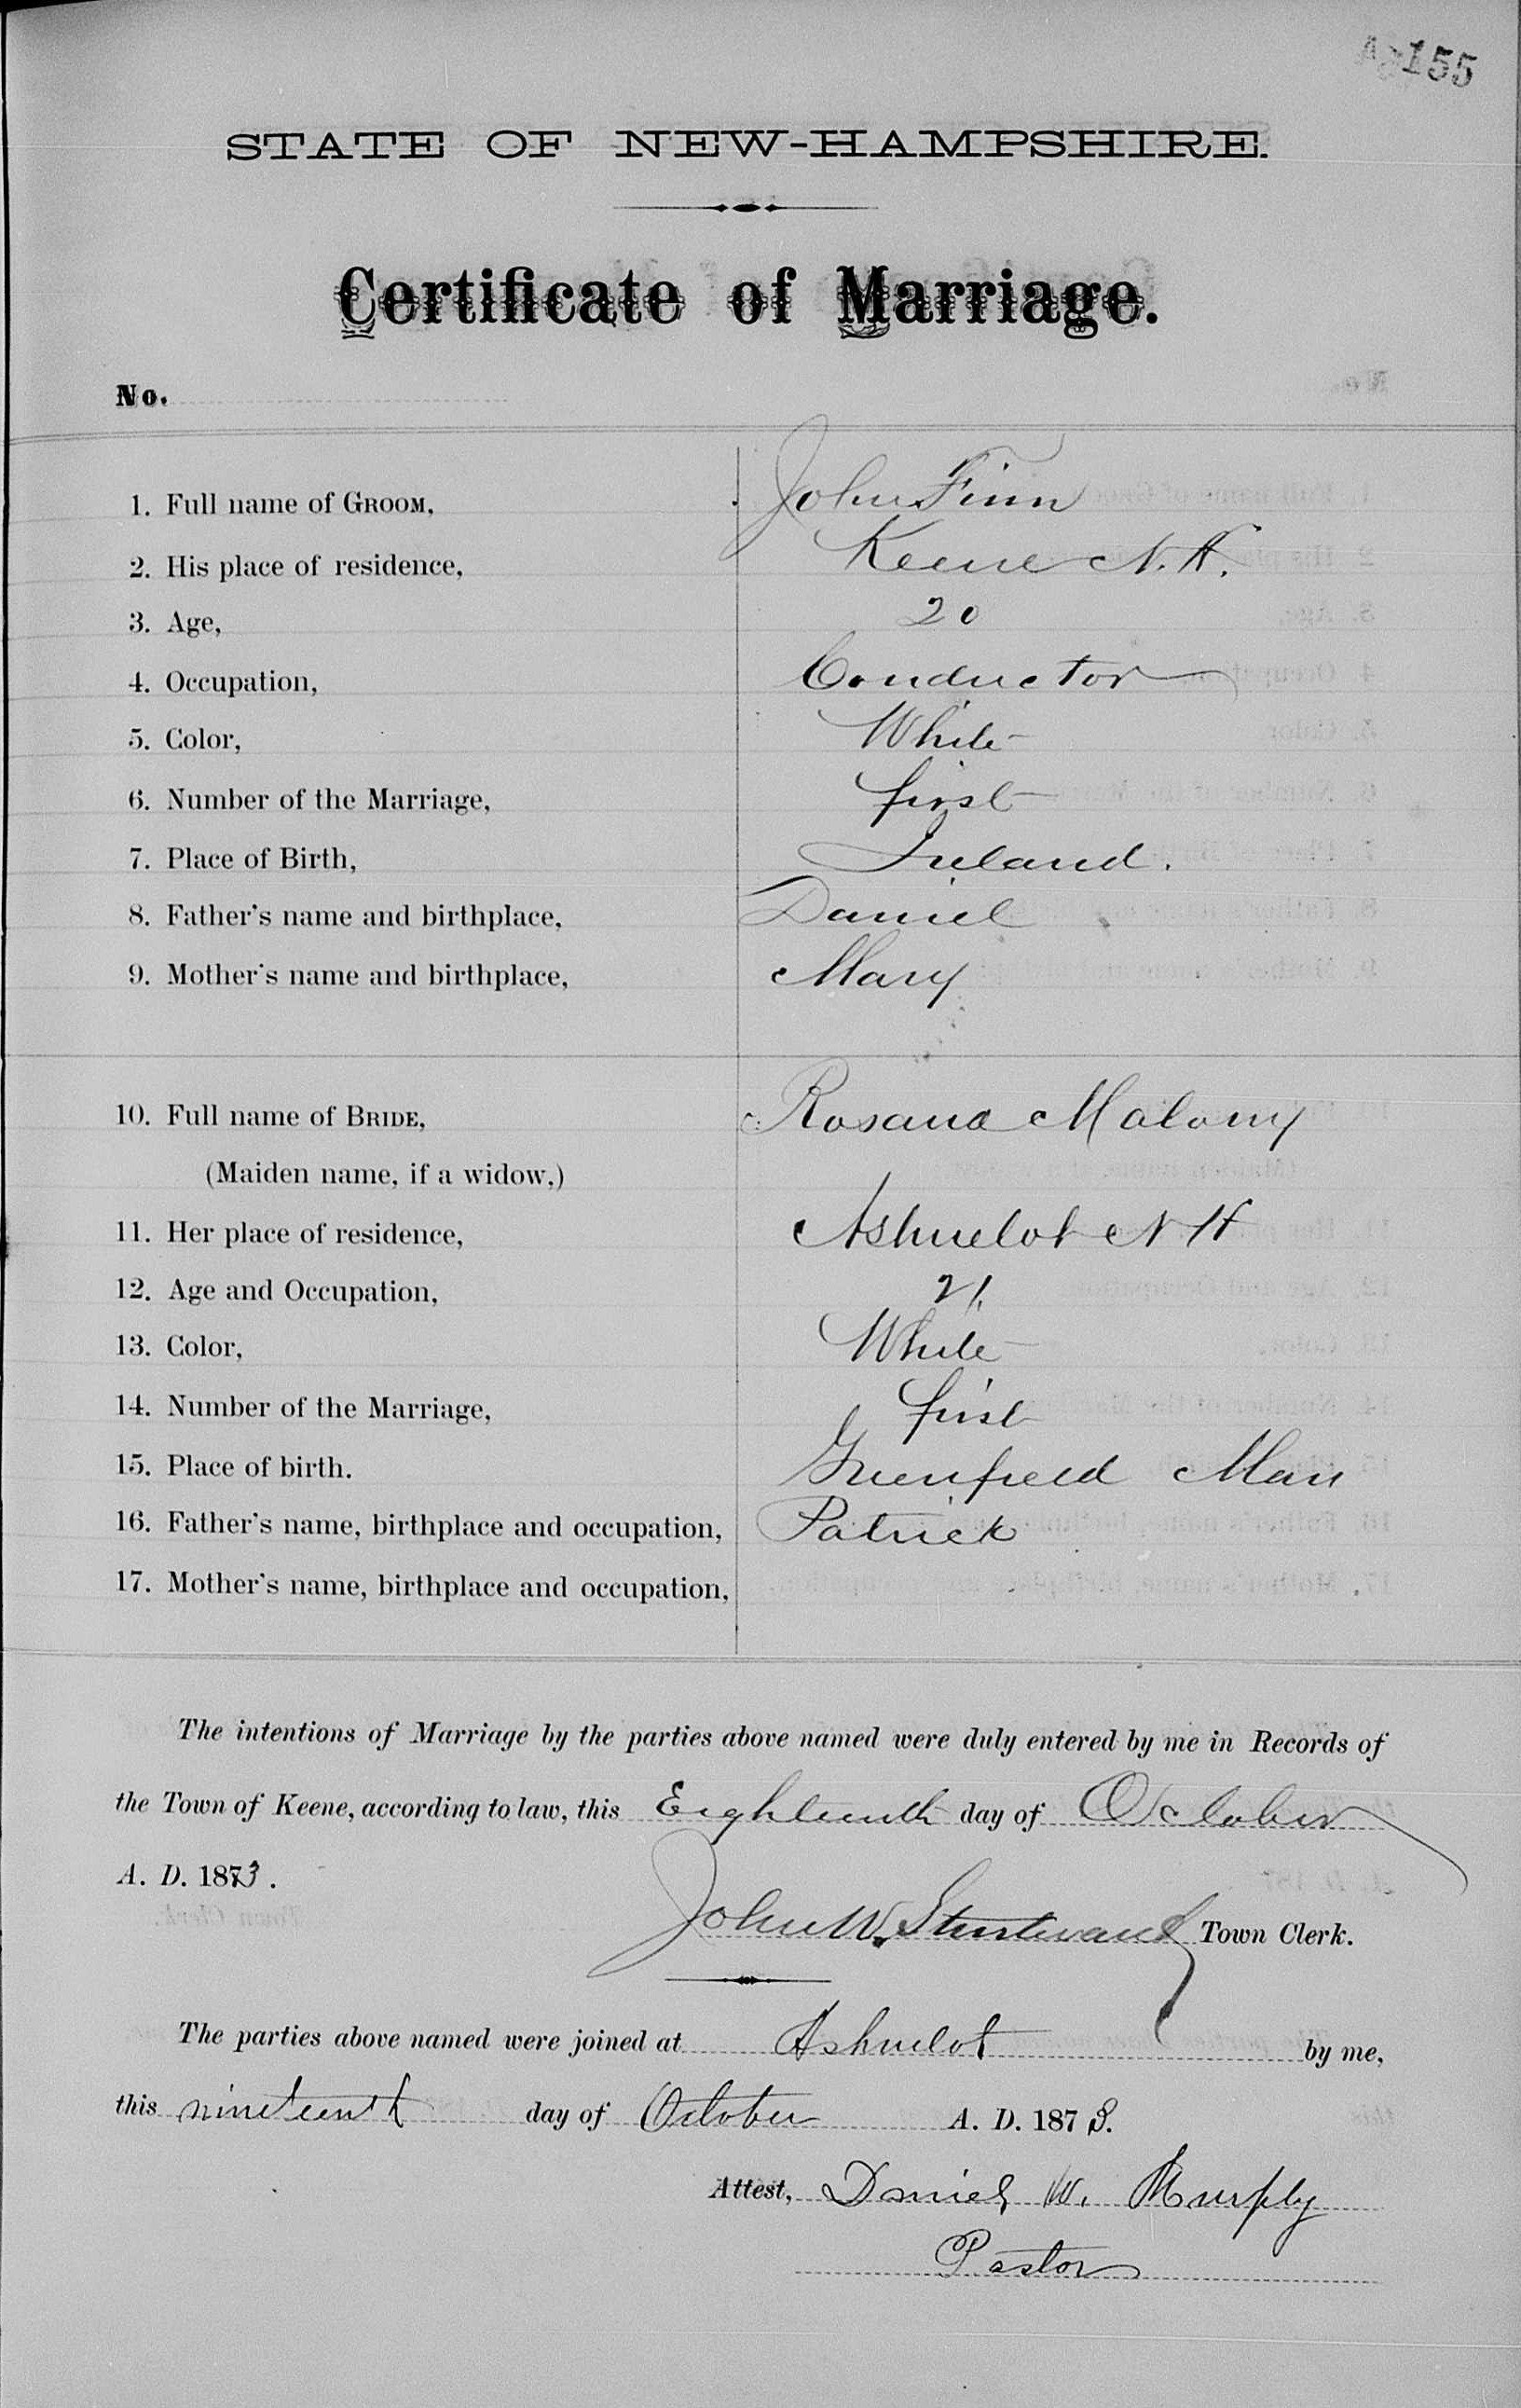 155
STATE OF NEW-HAMPSHIRE.
Certificate of Marriage.
No.
1. Full name of GROOM, John Finn
2. His place of residence, Keene N.H.
3. Age, 20
4. Occupation, Conductor
5. Color, White
6. Number of the Marriage, first
7. Place of Birth, Ireland.
8. Father's name and birthplace, Daniel
9. Mother's name and birthplace, Mary
10. Full name of BRIDE, Rosana Malony
(Maiden name, if a widow,)
11. Her place of residence, Ashuelot N H
12. Age and Occupation, 21.
13. Color, White
14. Number of the Marriage, first
15. Place of birth. Greenfield Mass
16. Father's name, birthplace and occupation, Patrick
17. Mother's name, birthplace and occupation,
The intentions of Marriage by the parties above named were duly entered by me in Records of
the Town of Keene, according to law, this Eighteenth day of October
A. D. 1873.
John W. Sturtevant Town Clerk.
The parties above named were joined at Ashuelot by me,
this nineteenth day of October A. D. 1873.
Attest, Daniel W. Murphy
Pastor